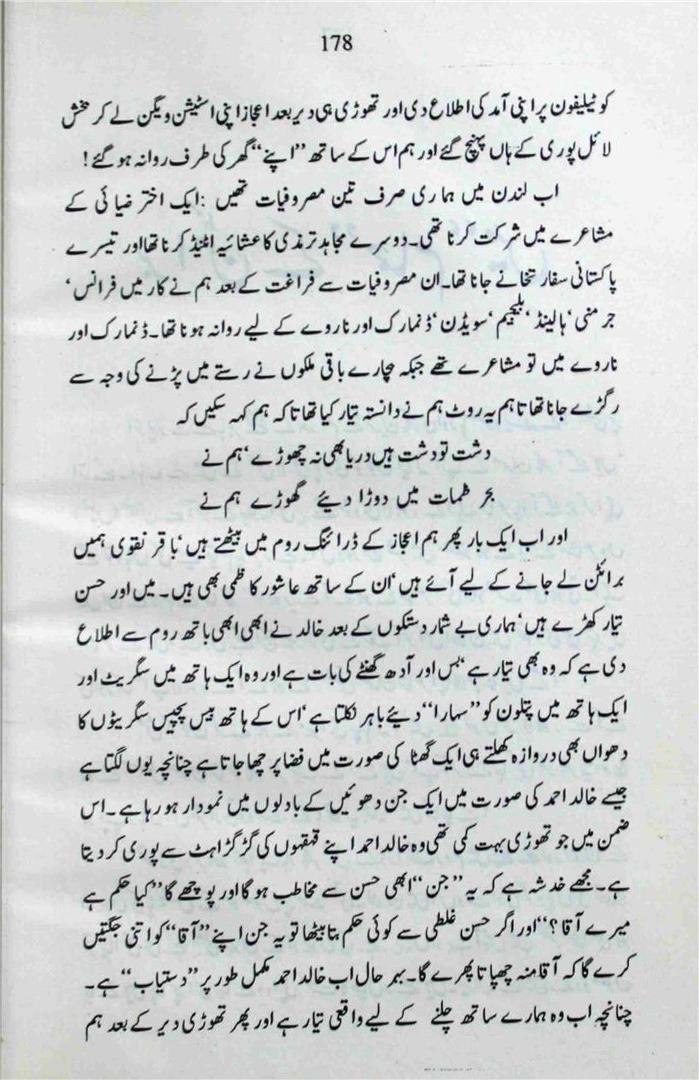 178
کو ٹیلیفون پر اپنی آمد کی اطلاع دی اور تھوڑی ہی دیر بعد اعجاز اپنی اسٹیشن ویگن لے کر بخش
لائل پوری کے ہاں پہنچ گئے اور ہم اس کے ساتھ "اپنے" گھر کی طرف روانہ ہو گئے!
اب لندن میں ہماری صرف تین مصروفیات تھیں: ایک اختر ضیائی کے
مشاعرے میں شرکت کرنا تھی۔ دوسرے مجاہد ترمذی کا عشائیہ اٹینڈ کرنا تھا اور تیسرے
پاکستانی سفارتخانے جانا تھا۔ ان مصروفیات سے فراغت کے بعد ہم نے کار میں فرانس'
جرمنی' ہالینڈ' بلجیم' سویڈن' ڈنمارک اور ناروے کے لیے روانہ ہونا تھا۔ ڈنمارک اور
ناروے میں تو مشاعرے تھے جبکہ بچارے باقی ملکوں نے رستے میں پڑنے کی وجہ سے
رگڑے جانا تھا تاہم یہ روٹ ہم نے دانستہ تیار کیا تھا تاکہ ہم کہہ سکیں کہ
دشت تو دشت ہیں دریا بھی نہ چھوڑے' ہم نے
بحر ظلمات میں دوڑا دیئے گھوڑے ہم نے
اور اب ایک بار پھر ہم اعجاز کے ڈرائنگ روم میں بیٹھتے ہیں' باقر نقوی ہمیں
برائٹن لے جانے کے لیے آئے ہیں' ان کے ساتھ عاشور کاظمی بھی ہیں۔ میں اور حسن
تیار کھڑے ہیں' ہماری بے شمار دستکوں کے بعد خالد نے ابھی ابھی باتھ روم سے اطلاع
دی ہے کہ وہ بھی تیار ہے' بس اور آدھ گھنٹے کی بات ہے اور وہ ایک ہاتھ میں سگریٹ اور
ایک ہاتھ میں پتلون کو "سہارا" دیئے باہر نکلتا ہے' اس کے ہاتھ بیس پچیس سگریٹوں کا
دھواں بھی دروازہ کھلتے ہی ایک گھٹا کی صورت میں فضا پر چھا جاتا ہے چنانچہ یوں لگتا ہے
جیسے خالد احمد کی صورت میں ایک جن دھوئیں کے بادلوں میں نمودار ہو رہا ہے۔ اس
ضمن میں جو تھوڑی بہت کمی تھی وہ خالد احمد اپنے قہقہوں کی گڑگڑاہٹ سے پوری کر دیتا
ہے۔ مجھے خدشہ ہے کہ یہ "جن" ابھی حسن سے مخاطب ہو گا اور پوچھے گا "کیا حکم ہے
میرے آقا؟" اور اگر حسن غلطی سے کوئی حکم بتا بیٹھا تو یہ جن اپنے "آقا" کو اتنی جگتیں
کرے گا کہ آقا منہ چھپاتا پھرے گا۔ بہر حال اب خالد احمد مکمل طور پر "دستیاب" ہے۔
چنانچہ اب وہ ہمارے ساتھ چلنے کے لیے واقعی تیار ہے اور پھر تھوڑی دیر کے بعد ہم